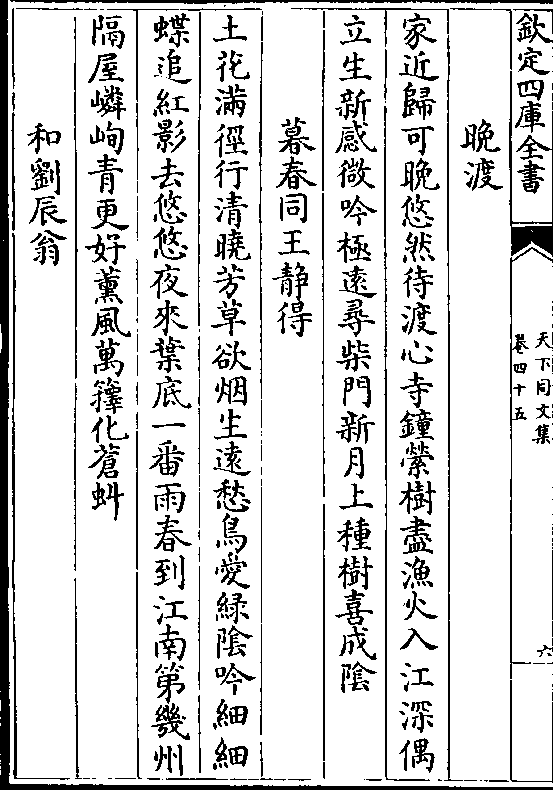 欽定四庫全書
天下同文集
卷四十五
六
晚渡
家近歸可晚悠然待渡心寺鐘縈樹盡漁火入江深偶
立生新感微吟極遠尋柴門新月上種樹喜成陰
暮春同王静得
土花滿徑行清曉芳草欲烟生遠愁鳥愛緑陰吟細細
蝶追紅影去悠悠夜來葉底一番雨春到江南第幾州
隔屋嶙峋青更好薰風萬籜化蒼虯
和劉辰翁